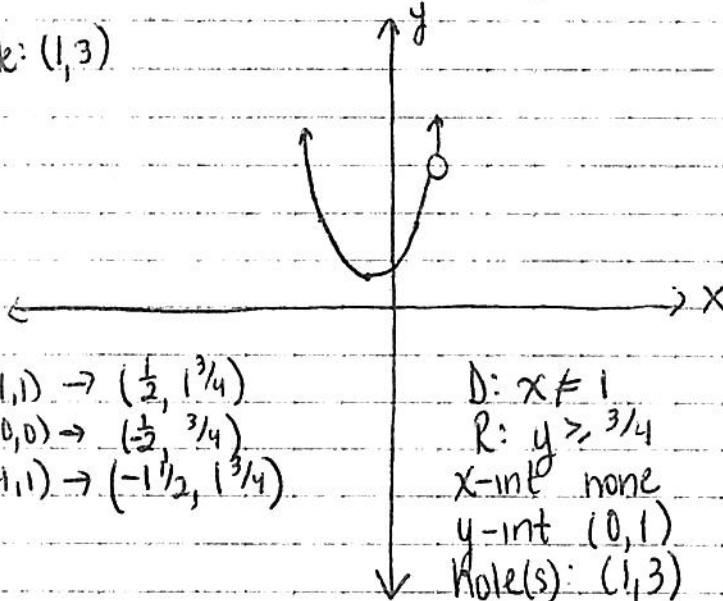 y
: (1,3)
x
1,1) → (1/2, 1 3/4)
0,0) → (-1/2, 3/4)
1,1) → (-1 1/2, 1 3/4)
D: x ≠ 1
R: y ≥ 3/4
x-int none
y-int (0,1)
Hole(s): (1,3)